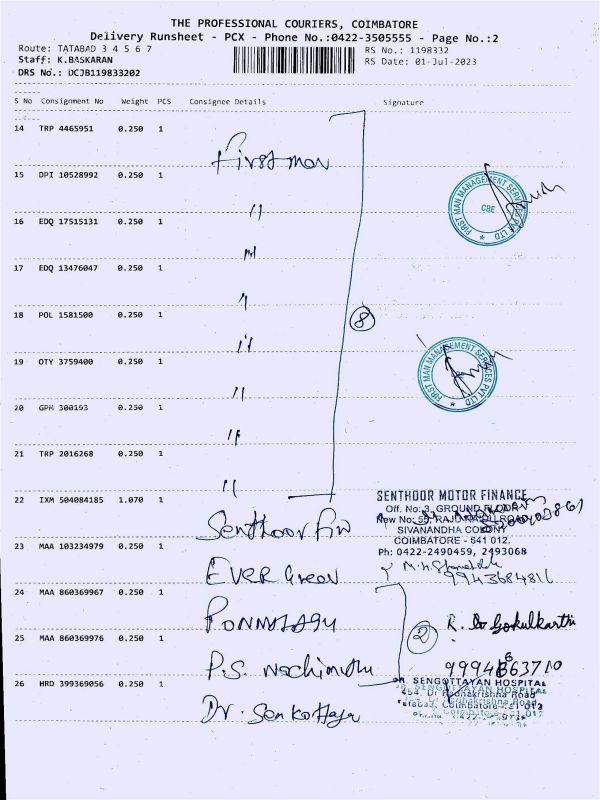 THE PROFESSIONAL COURIERS, COIMBATORE
Delivery Runsheet - PCX - Phone No.:0422-3505555 - Page No.:2
Route: TATABAD 3 4 5 6 7
RS No.: 1198332
Staff: K.BASKARAN
RS Date: 01-Jul-2023
DRS No.: DCJB119833202
S No Consignment No Weight PCS Consignee Details Signature
14 TRP 4465951 0.250 1
First man
15 DPI 10528992 0.250 1
FIRST MAN MANAGEMENT SERVICES PVT LTD
CBE
"
16 EDQ 17515131 0.250 1
"
17 EDQ 13476047 0.250 1
"
18 POL 1581500 0.250 1
8
"
19 OTY 3759400 0.250 1
FIRST MAN MANAGEMENT SERVICES PVT LTD
"
20 GPM 300193 0.250 1
"
21 TRP 2016268 0.250 1
"
22 IXM 504084185 1.070 1
SENTHOOR MOTOR FINANCE
Off. No: 3, GROUND FLOOR
New No: 59, RAJU NAIDU ROAD
SIVANANDHA COLONY
COIMBATORE - 641 012.
Ph: 0422-2490459, 2493068
Senthoor Fin
23 MAA 103234979 0.250 1
EVER Green
9943684816
24 MAA 860369967 0.250 1
PONNUSAGU
R. Gokulkarthi
25 MAA 860369976 0.250 1
2
P.S. Nachimuthu
26 HRD 399369056 0.250 1
SENGOTTAYAN HOSPITAL
Dr.